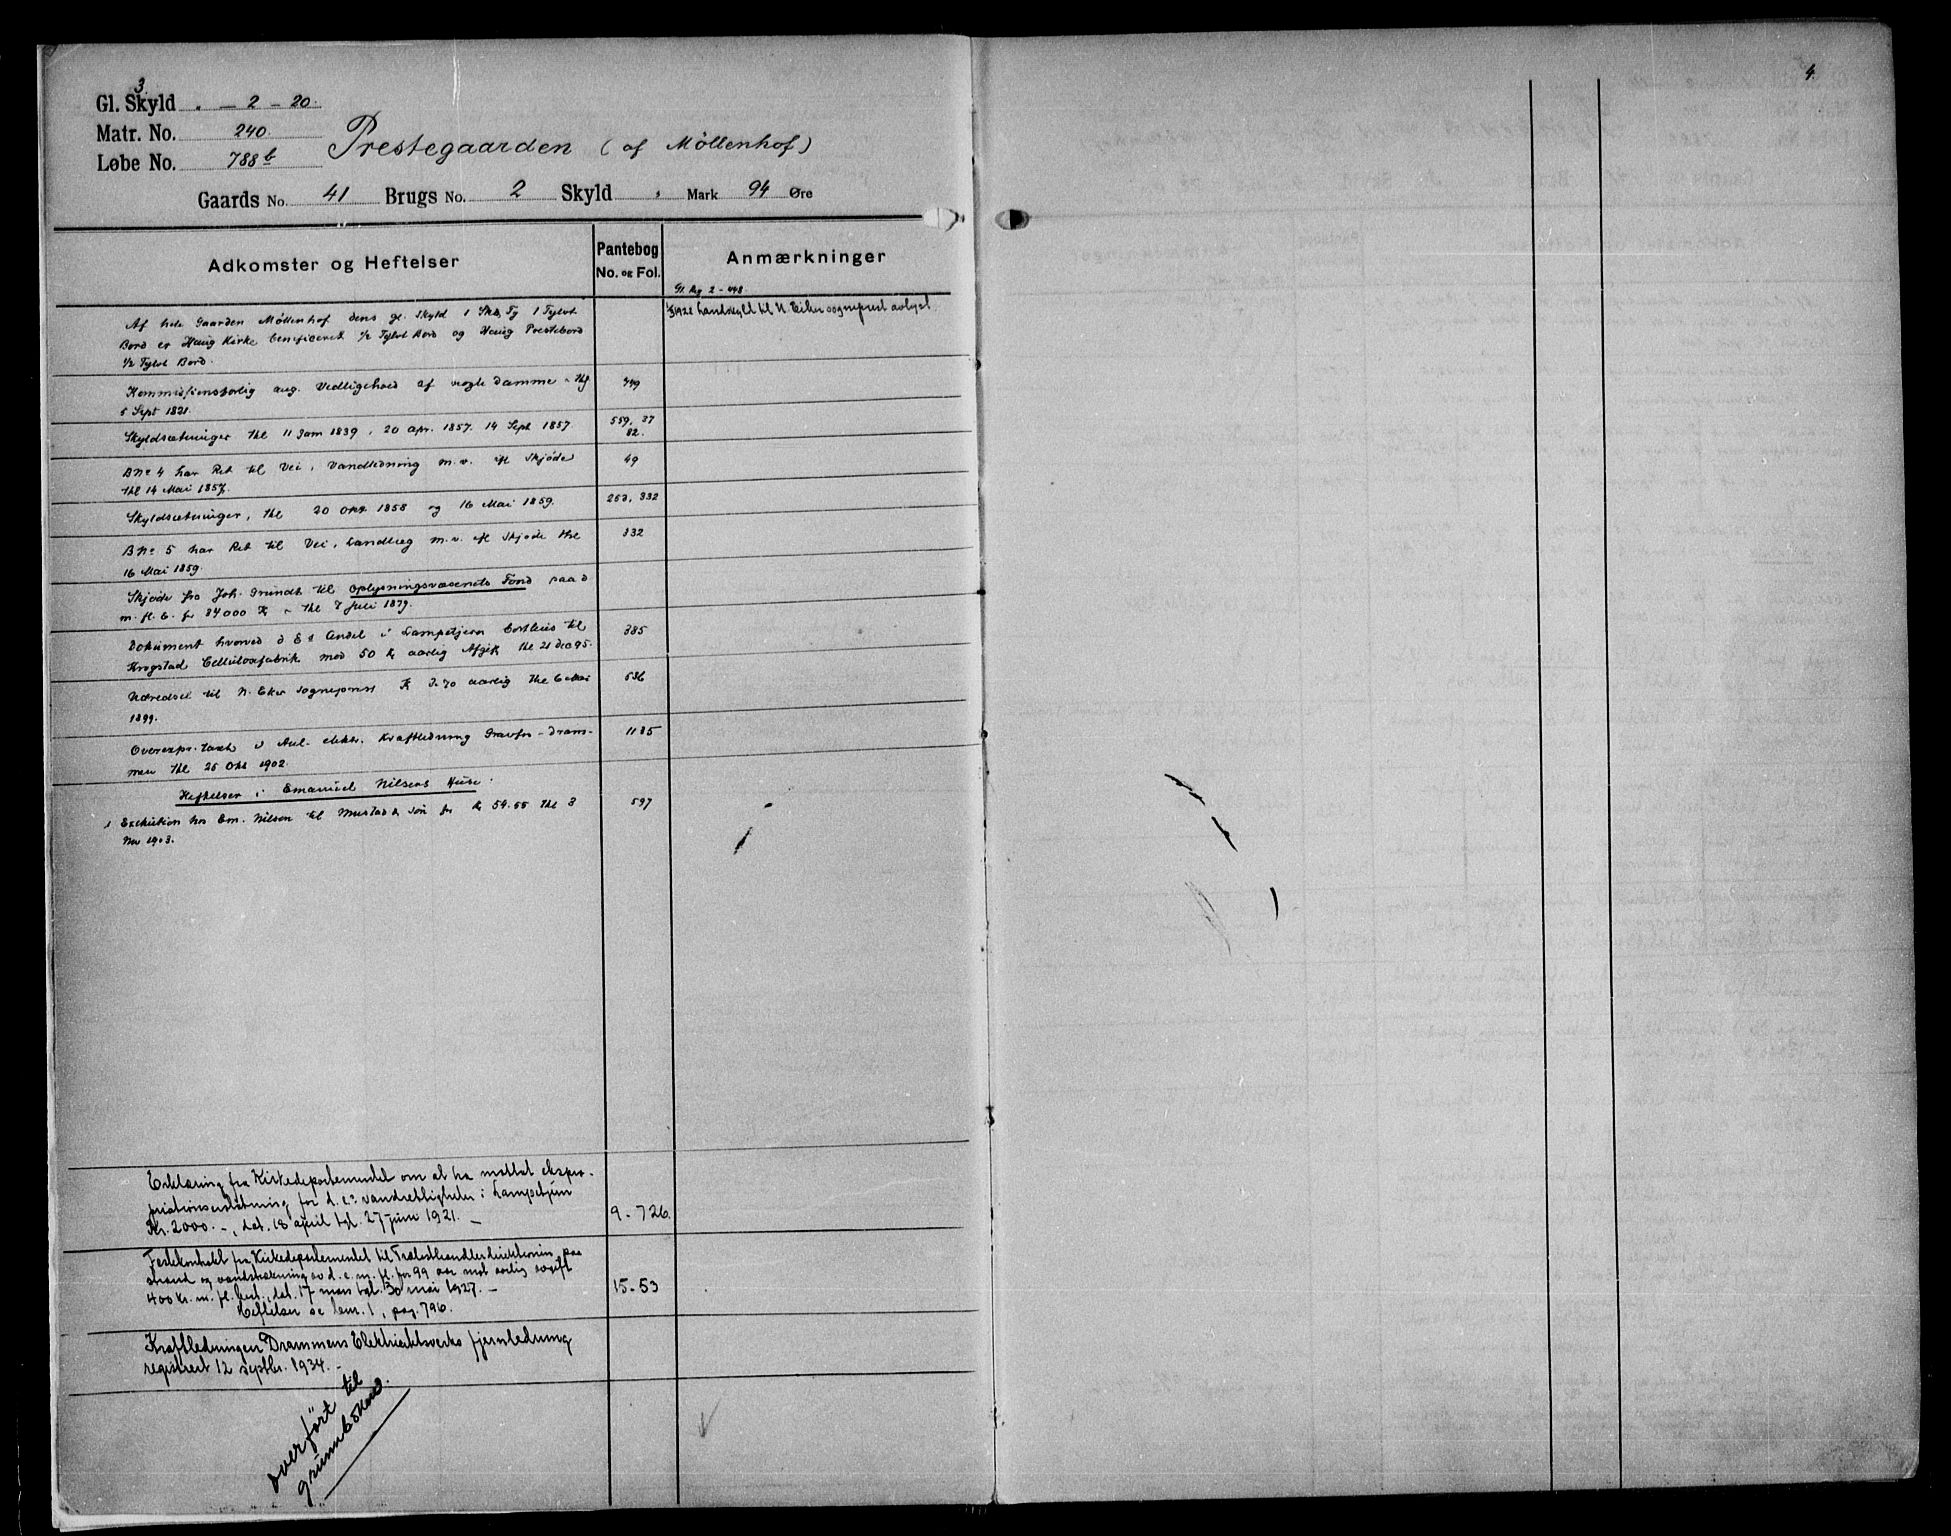 3.
Gl. Skyld . – 2 – 20.
Matr. No. 240.
Løbe No. 788 b
Prestegaarden (af Møllenhof)
Gaards No. 41 Brugs No. 2 Skyld , Mark 94 Øre
Adkomster og Heftelser
Pantebog
No. og Fol.
Anmærkninger
Gl. Reg 2 – 448.
Af hele Gaarden Møllenhof dens gl. Skyld 1 Skd, Tg 1 Tylvt
Bord er Haug Kirke beneficeret 1/2 Tylvt Bord og Haug Prestebord
1/2 Tylvt Bord.
1921 Landskyld til N. Eiker sogneprest avløst.
Kommissionsforlig ang. Vedligehold af damme – thl
5 Sept 1821.
449
Skyldsætninger thl 11 Jan 1839, 20 Apr. 1857. 14 Sept 1857.
559, 37
82.
B No 4 har Ret til Vei, Vandledning m.v. efl Skjøde
thl 14 Mai 1857.
49
Skyldsætninger, thl 20 Okt 1858 og 16 Mai 1859.
253, 332
B No 5 har Ret til Vei, Landlæg m.v. efl Skjøde thl
16 Mai 1859.
332
Skjøde fra Joh. Grundt til Oplysningsvæsenets Fond paa d
m. fl. E. for 84000 Kr – thl 7 Juli 1879.
Dokument hvorved d Es Andel i Lampetjern bortleies til
Krogstad Cellulosefabrik mod 50 Kr aarlig Afgift thl 21 Dec 95.
385
Udredsel til N. Eker Sogneprest Kr 2.70 aarlig thl 6 Mai
1899.
536
Overexpr. taxt i Anl. elektr. Kraftledning Gravfos – Dram-
men thl 25 Okt 1902.
1185
Heftelser i Emanuel Nilsens Huse.
1 Exekution hos Em. Nilsen til Mustad & Søn for Kr 59.55 thl 3
Nov 1903.
597
Erklæring fra Kirkedepartementet om at ha mottat ekspro-
priationserstatning for d. e.s vandrettigheter i Lampetjern
Kr. 2000.–, dat. 18 april tgl. 27 juni 1921. –
9 - 726.
Festekontrakt fra Kirkedepartementet til paa
strand og vandstrækning av d. e. m. fl. for 99 aar mot aarlig avgift
400 kr. m. fl. best., dat. 17 mars tgl. 30 mai 1927. –
Heftelser se lem. 1, pag. 796.
15 - 53
Kraftledningen Drammens Elektricitetsverks fjernledning
registrert 12 septbr. 1934. –
overført til
grunnboken.
4.